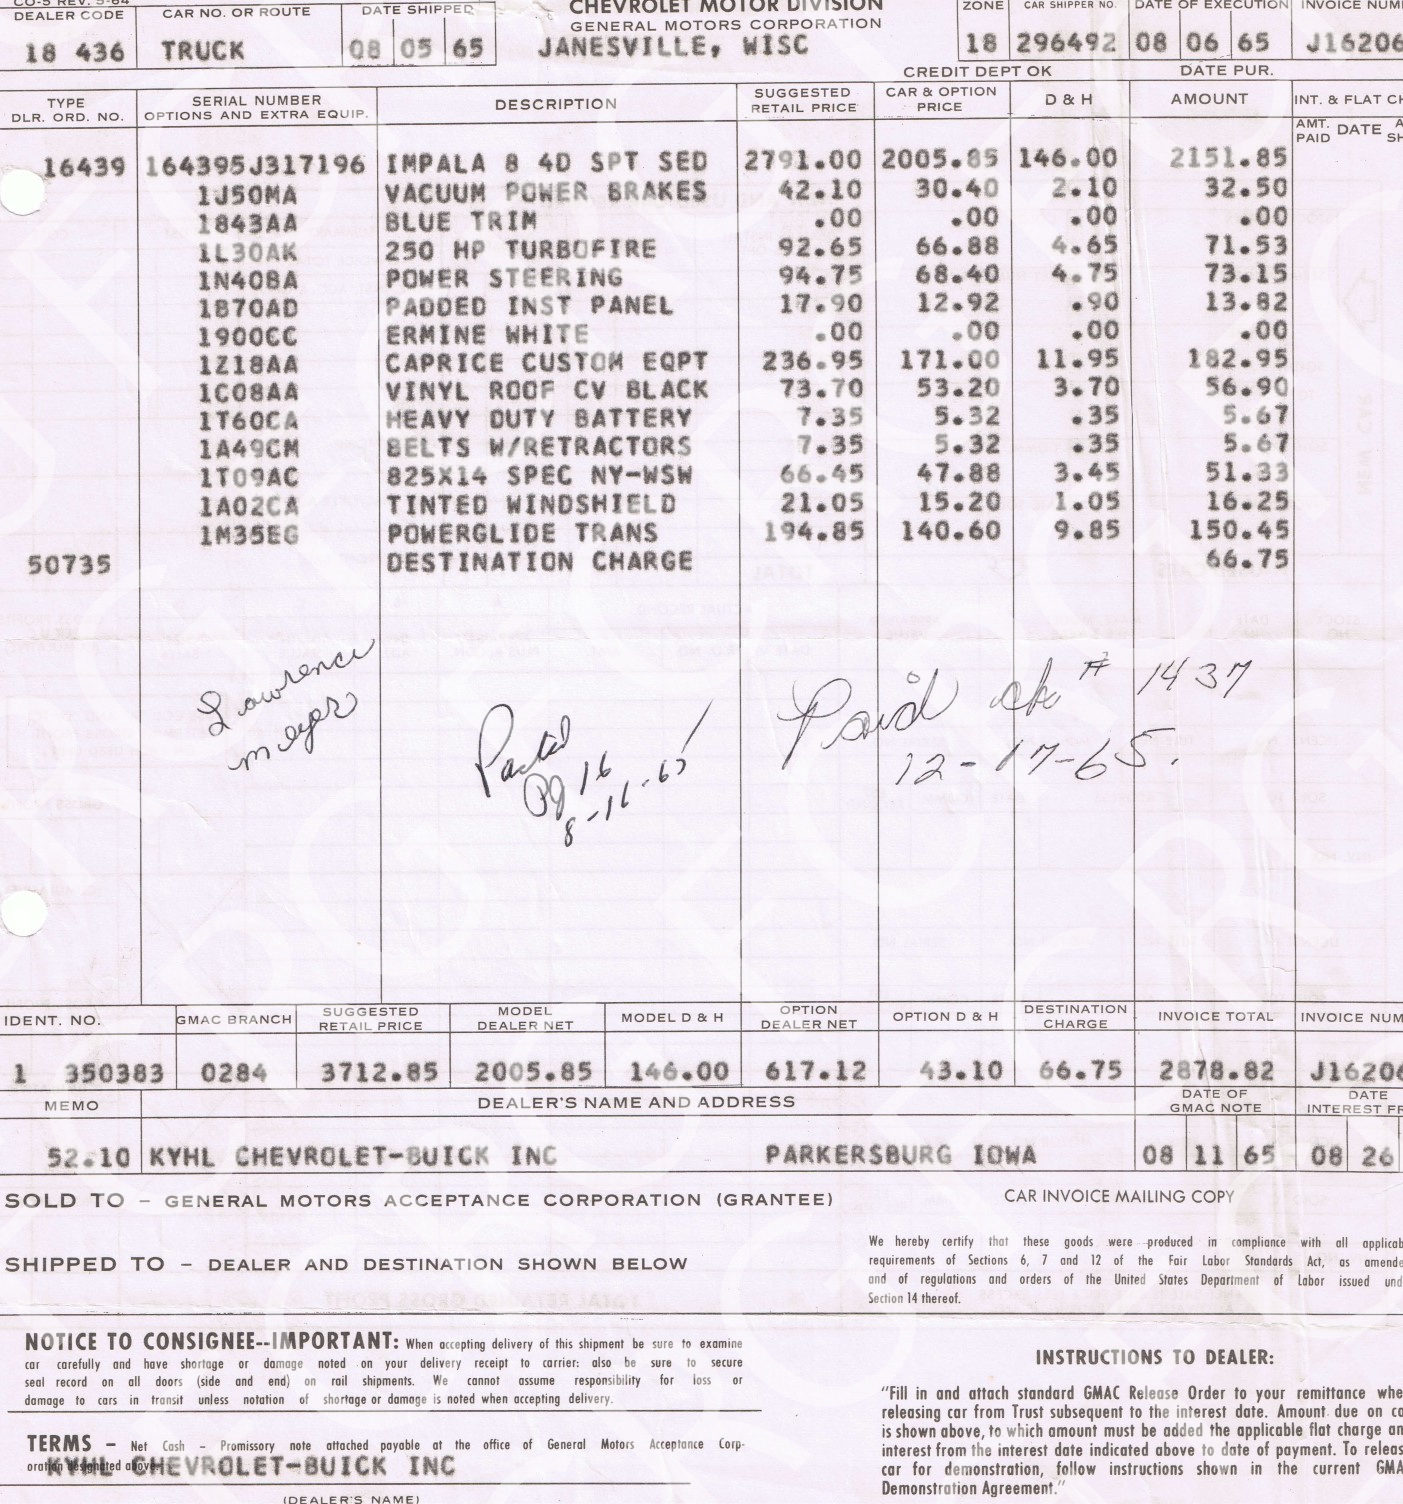 CO-5 REV. 5-64
DEALER CODE CAR NO. OR ROUTE DATE SHIPPED CHEVROLET MOTOR DIVISION ZONE CAR SHIPPER NO. DATE OF EXECUTION INVOICE NUM
GENERAL MOTORS CORPORATION
18 436 TRUCK 08 05 65 JANESVILLE, WISC 18 296492 08 06 65 J16206
CREDIT DEPT OK DATE PUR.
TYPE DLR. ORD. NO. SERIAL NUMBER OPTIONS AND EXTRA EQUIP. DESCRIPTION SUGGESTED RETAIL PRICE CAR & OPTION PRICE D & H AMOUNT INT. & FLAT CH
AMT. PAID DATE A SH
16439 164395J317196 IMPALA 8 4D SPT SED 2791.00 2005.85 146.00 2151.85
1J50MA VACUUM POWER BRAKES 42.10 30.40 2.10 32.50
1843AA BLUE TRIM .00 .00 .00 .00
1L30AK 250 HP TURBOFIRE 92.65 66.88 4.65 71.53
1N40BA POWER STEERING 94.75 68.40 4.75 73.15
1B70AD PADDED INST PANEL 17.90 12.92 .90 13.82
1900CC ERMINE WHITE .00 .00 .00 .00
1Z18AA CAPRICE CUSTOM EQPT 236.95 171.00 11.95 182.95
1C08AA VINYL ROOF CV BLACK 73.70 53.20 3.70 56.90
1T60CA HEAVY DUTY BATTERY 7.35 5.32 .35 5.67
1A49CM BELTS W/RETRACTORS 7.35 5.32 .35 5.67
1T09AC 825X14 SPEC NY-WSW 66.45 47.88 3.45 51.33
1A02CA TINTED WINDSHIELD 21.05 15.20 1.05 16.25
1M35EG POWERGLIDE TRANS 194.85 140.60 9.85 150.45
50735 DESTINATION CHARGE 66.75
Lawrence
Meyer
Posted
Pg 16
8-11-65
Paid ck # 1437
12-17-65.
IDENT. NO. GMAC BRANCH SUGGESTED RETAIL PRICE MODEL DEALER NET MODEL D & H OPTION DEALER NET OPTION D & H DESTINATION CHARGE INVOICE TOTAL INVOICE NUM
1 350383 0284 3712.85 2005.85 146.00 617.12 43.10 66.75 2878.82 J16206
MEMO DEALER'S NAME AND ADDRESS DATE OF GMAC NOTE DATE INTEREST FR
52.10 KYHL CHEVROLET-BUICK INC PARKERSBURG IOWA 08 11 65 08 26
SOLD TO – GENERAL MOTORS ACCEPTANCE CORPORATION (GRANTEE)
CAR INVOICE MAILING COPY
SHIPPED TO – DEALER AND DESTINATION SHOWN BELOW
We hereby certify that these goods were produced in compliance with all applicab
requirements of Sections 6, 7 and 12 of the Fair Labor Standards Act, as amende
and of regulations and orders of the United States Department of Labor issued und
Section 14 thereof.
NOTICE TO CONSIGNEE--IMPORTANT: When accepting delivery of this shipment be sure to examine
car carefully and have shortage or damage noted on your delivery receipt to carrier: also be sure to secure
seal record on all doors (side and end) on rail shipments. We cannot assume responsibility for loss or
damage to cars in transit unless notation of shortage or damage is noted when accepting delivery.
TERMS – Net Cash – Promissory note attached payable at the office of General Motors Acceptance Corp-
oration designated above.
KYHL CHEVROLET-BUICK INC
(DEALER'S NAME)
INSTRUCTIONS TO DEALER:
"Fill in and attach standard GMAC Release Order to your remittance whe
releasing car from Trust subsequent to the interest date. Amount due on ca
is shown above, to which amount must be added the applicable flat charge an
interest from the interest date indicated above to date of payment. To releas
car for demonstration, follow instructions shown in the current GMA
Demonstration Agreement."